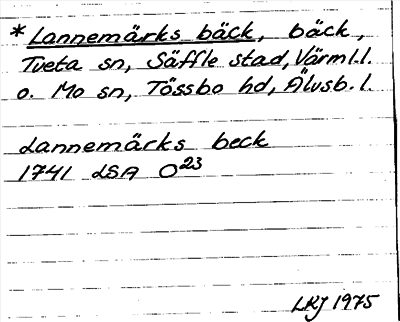 *Lannemärks bäck, bäck,
Tveta sn, Säffle stad, Värml.l.
o. Mo sn, Tössbo hd, Älvsb.l.
Lannemärks beck
1741 LSA O23
LKJ 1975